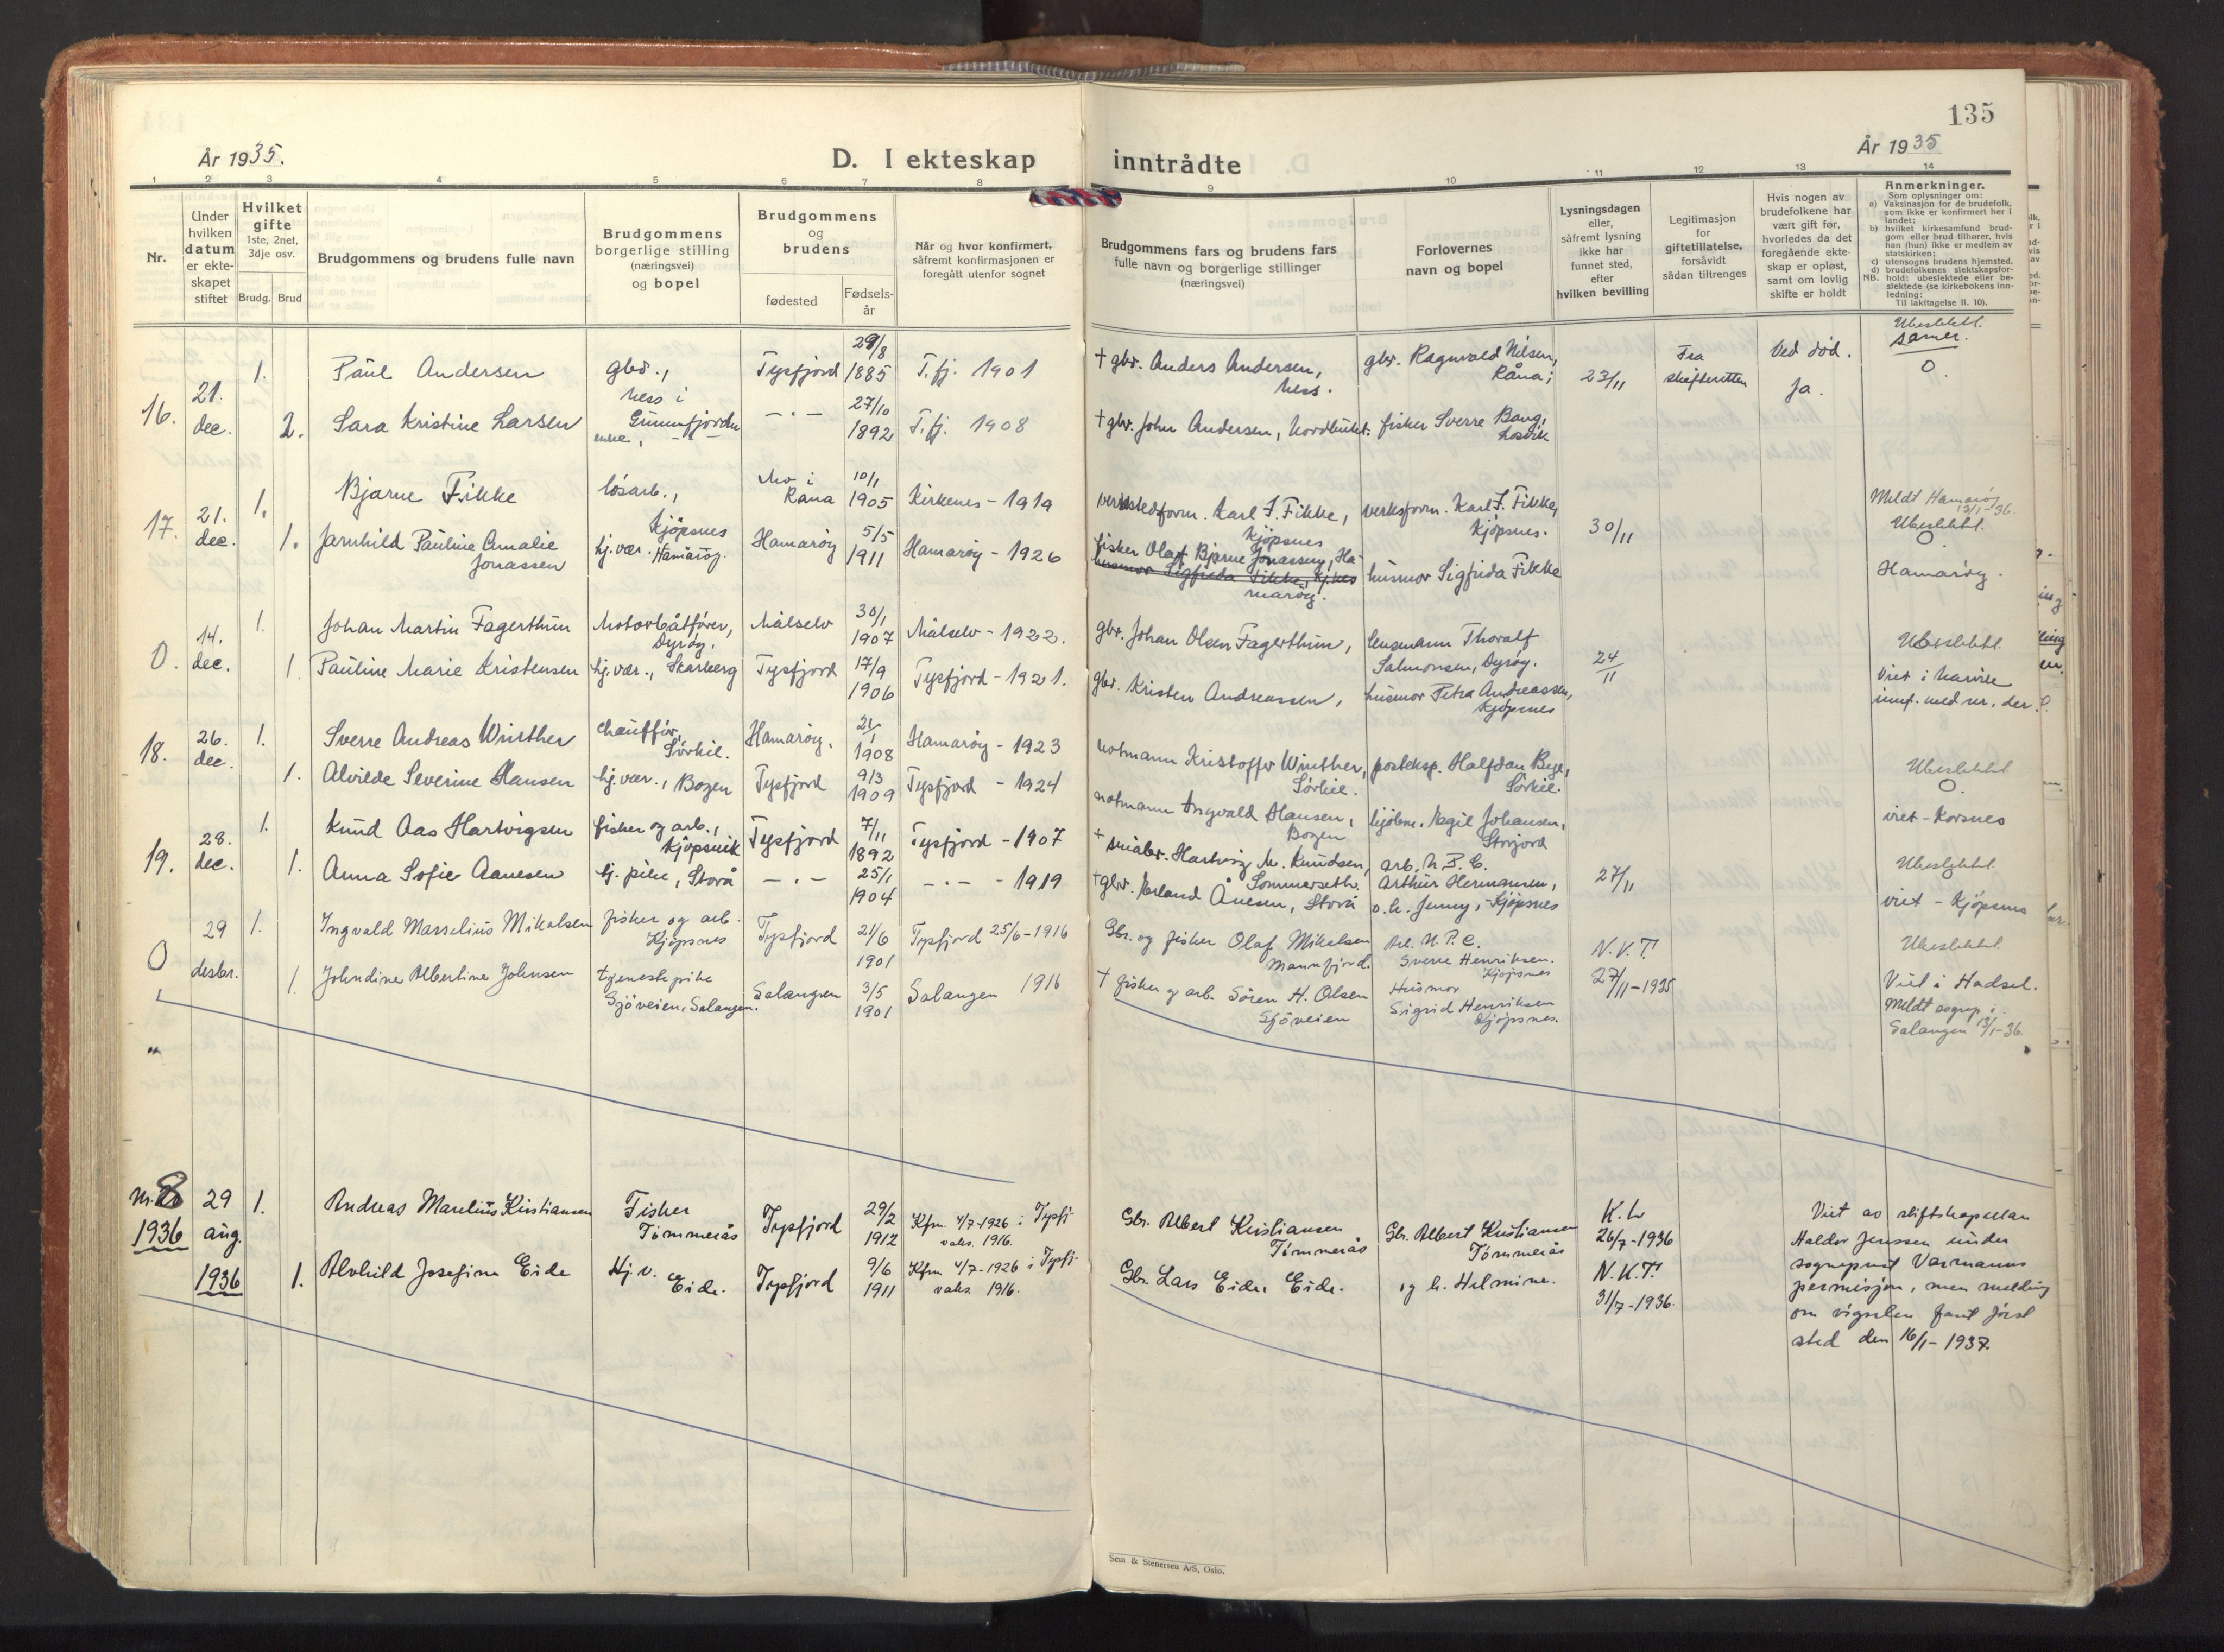 135
År 1935.
År 1935
D. I ekteskap inntrådte
1 2 3 4 5 6 7 8 9 10 11 12 13 14
Nr.
Under
hvilken
datum
er ekte-
skapet
stiftet
Hvilket
gifte
1ste, 2net,
3dje osv.
Brudg. Brud
Brudgommens og brudens fulle navn
Brudgommens
borgerlige stilling
(næringsvei)
og bopel
Brudgommens
og
brudens
fødested
Fødsels-
år
Når og hvor konfirmert,
såfremt konfirmasjonen er
foregått utenfor sognet
Brudgommens fars og brudens fars
fulle navn og borgerlige stillinger
(næringsvei)
Forlovernes
navn og bopel
Lysningsdagen
eller,
såfremt lysning
ikke har
funnet sted,
efter
hvilken bevilling
Legitimasjon
for
giftetillatelse,
forsåvidt
sådan tiltrenges
Hvis nogen av
brudefolkene har
vært gift før,
hvorledes da det
foregående ekte-
skap er opløst,
samt om lovlig
skifte er holdt
Anmerkninger.
Som oplysninger om:
a) Vaksinasjon for de brudefolk,
som ikke er konfirmert her i
landet;
b) hvilket kirkesamfund brud-
gom eller brud tilhører, hvis
han (hun) ikke er medlem av
statskirken;
c) utensogns brudens hjemsted.
d) brudefolkenes slektskapsfor-
NB. hold: ubeslektede eller be-
slektede (se kirkebokens inn-
ledning:
Til iakttagelse II. 10).
16. 21. dec.
1. Paul Andersen
gbr., Ness i Grunnfjorden
Tysfjord 29/8 1885
T.fj. 1901
† gbr. Anders Andersen, Ness.
gbr. Ragnvald Nilsen, Råna;
23/11
Fra skifteretten
Ved död.
Ja.
Ubeslektet.
samer.
O.
2. Sara Kristine Larsen
enke, -"-
-"- 27/10 1892
T.fj. 1908
† gbr. John Andersen,
fisker Sverre Bang,
17. 21. dec.
1. Bjarne Fikke
løsarb., Kjøpsnes
Mo i Rana 10/1 1905
Kirkenes - 1919
verkstedform. Karl J. Fikke, Kjøpsnes
verksform. Karl J. Fikke, Kjøpsnes.
30/11
Meldt Hamarøy 13/1-36.
Ubeslektet.
O
Hamarøy.
1. Jarnhild Pauline Amalie Jonassen
hj.vær. Hamarøy.
Hamarøy 5/5 1911
Hamarøy - 1926
fisker Olaf Bjarne Jonassen, Ha-
husmor Sigfrida Fikke, Kj.nes
marøy.
husmor Sigfrida Fikke
O. 14. dec.
1. Johan Martin Fagerthun
Motorbåtfører, Dyrøy.
Målselv 30/1 1907
Målselv - 1922.
gbr. Johan Olsen Fagerthun,
lensmann Thoralf Salmonsen, Dyrøy.
24/11
Ubeslektet.
Viet i Narvik
1. Pauline Marie Kristensen
hj.vær., Skarberg
Tysfjord 17/9 1906
Tysfjord - 1921.
gbr. Kristen Andreassen,
husmor Petra Andreassen, Kjøpsnes
18. 26. dec.
1. Sverre Andreas Winther
Chauffør, Sørkil.
Hamarøy. 21/1 1908
Hamarøy - 1923
notmann Kristoffer Winther, Sørkil.
posteksp. Halfdan Bye, Sørkil.
Ubeslektet
O.
viet - Korsnes
1. Alvilde Severine Hansen
hj.vær., Bogen
Tysfjord 9/3 1909
Tysfjord - 1924
notmann Ingvald Hansen, Bogen
Egil Johansen, Storjord
19. 28. dec.
1. Knud Aas Hartvigsen
fisker og arb., Kjøpsvik
Tysfjord 7/11 1892
Tysfjord - 1907
† småbr. Hartvig M. Knudsen, Sommerseth.
arb. N.P.C. Arthur Hermansen,
27/11
Ubeslektet
viet - Kjøpsnes
1. Anna Sofie Aanesen
tj. pike, Storå
-"- 25/1 1904
-"- - 1919
† gbr. Erland Ånesen, Storå
o.h. Jenny, Kjøpsnes
O 29 desbr.
1. Ingvald Marselius Mikalsen
fisker og arb. Kjøpsnes
Tysfjord 21/6 1901
Tysfjord 25/6-1916
Gbr. og fisker Olaf Mikalsen Mannfjord.
Arb. N.P.C. Sverre Henriksen. Kjøpsnes
N.K.T.
27/11-1935
Ubeslektet.
Viet i Hadsel.
Meldt sognep. i
Salangen 13/1-36.
1. Johndine Albertine Johnsen
tjenestepike Sjøveien, Salangen.
Salangen 3/5 1901
Salangen 1916
† fisker og arb. Søren H. Olsen Sjøveien
Husmor Sigrid Henriksen Kjøpsnes.
"
Nr. 8
1936
29 aug. 1936
1. Andreas Marelius Kristiansen
Fisker Tømmerås
Tysfjord 29/2 1912
Kfm. 4/7-1926 i Tysfj-
vaks. 1916.
Gbr. Albert Kristiansen Tømmerås
Gbr. Albert Kristiansen Tømmerås
K.L
26/7-1936
N.K.T.
31/7-1936.
1. Alvhild Josefine Eide
Hj.v. Eide.
Tysfjord 9/6 1911
Kfm 4/7-1926 i Tysfj-
vaks. 1916.
Gbr. Lars Eide, Eide.
og h. Helmine.
Viet av stiftskapellan
Haldor Jenssen under
sogneprest Varmanns
permisjon, men melding
om vigselen fant først
sted den 16/1-1937.
Sem & Stenersen A/S, Oslo.